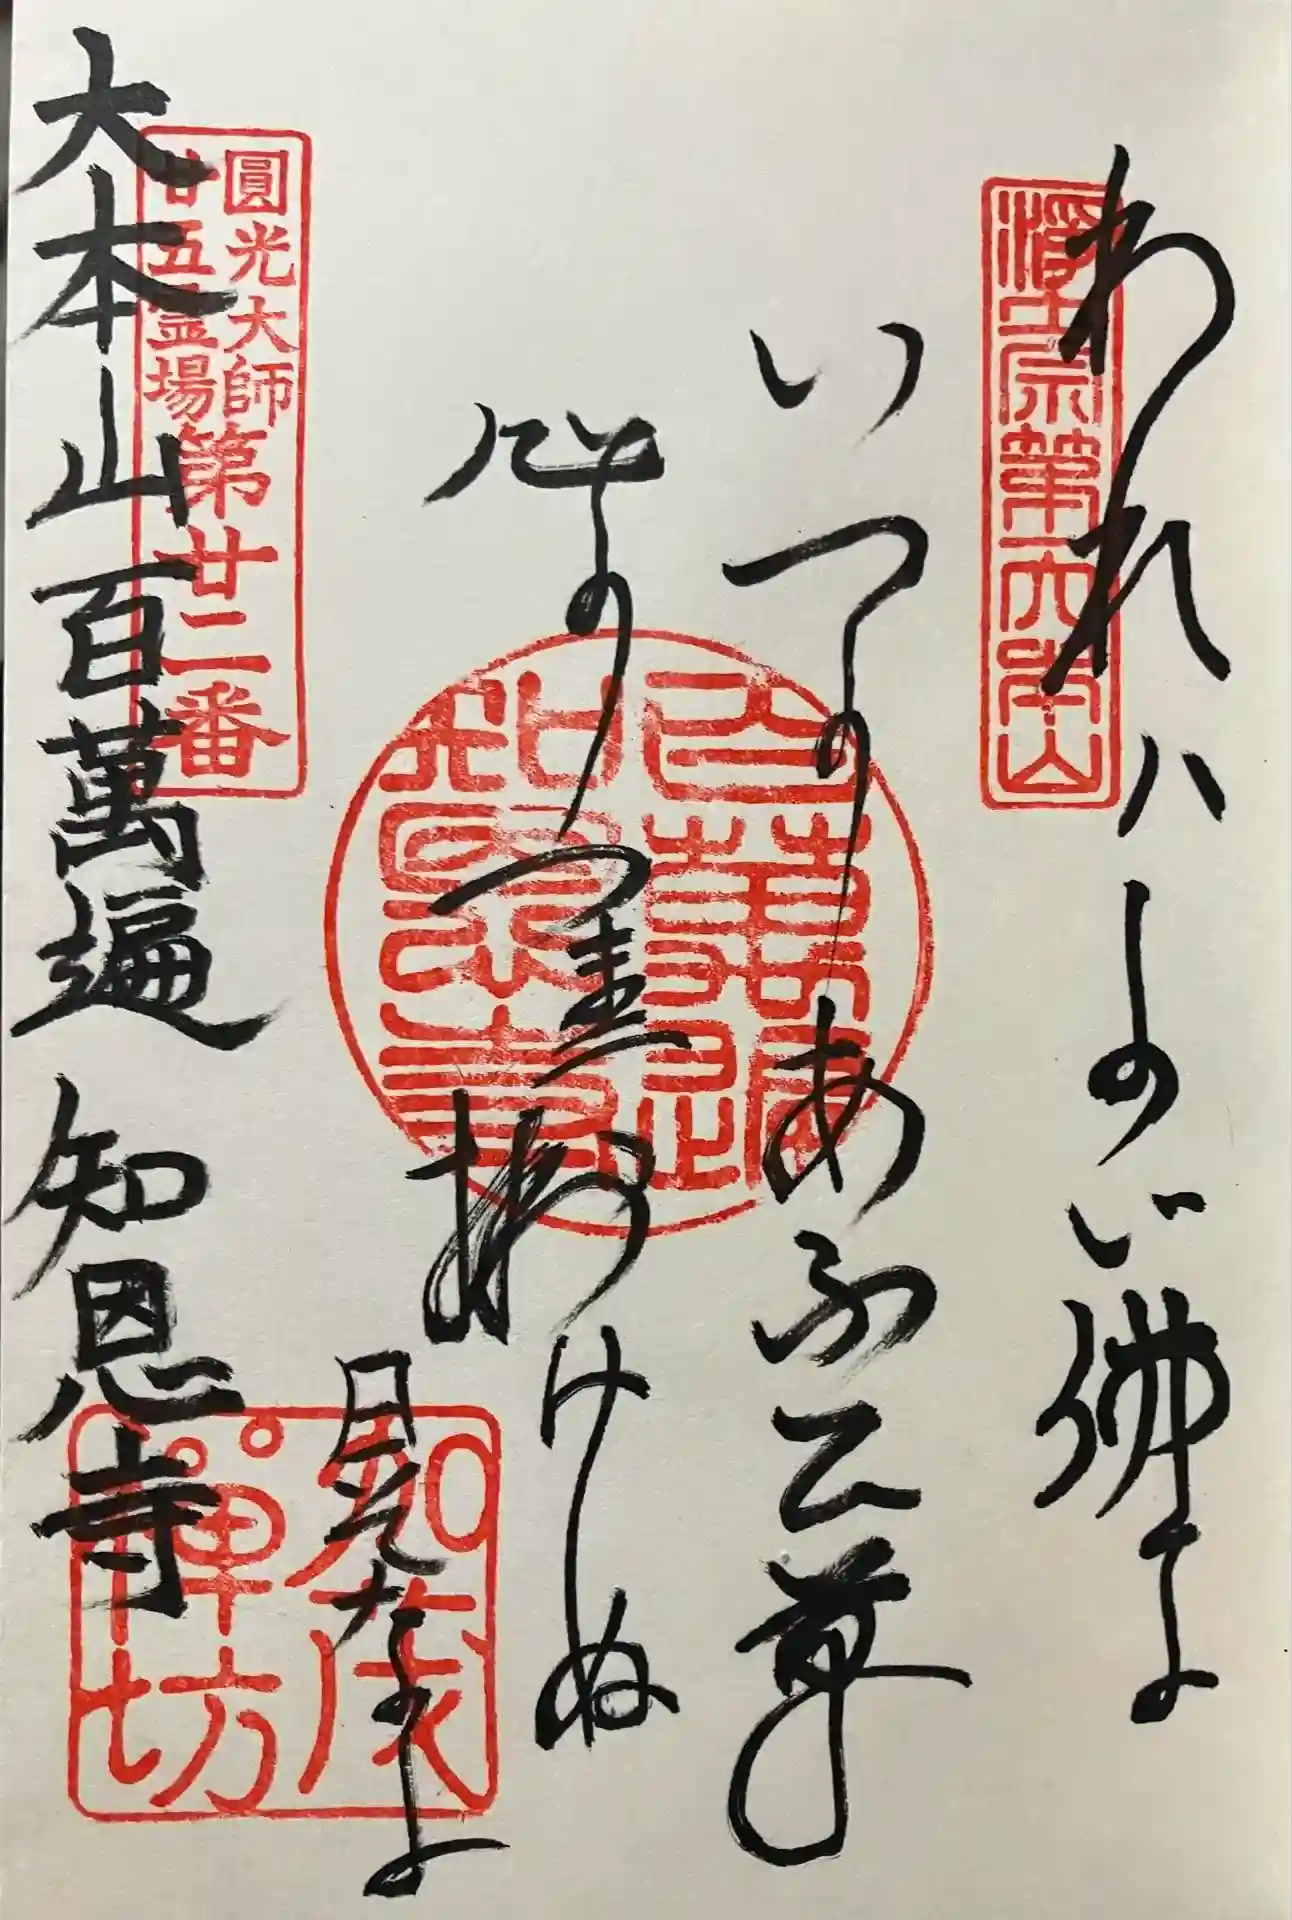 われハたゞ佛に
いつかあふひ草
心のつまにかけぬ
日そなき
大本山百萬遍 知恩寺
淨土宗第
本山
百萬遍
知恩寺
圓光大師
廿五霊場
第廿二番
加茂
禪坊